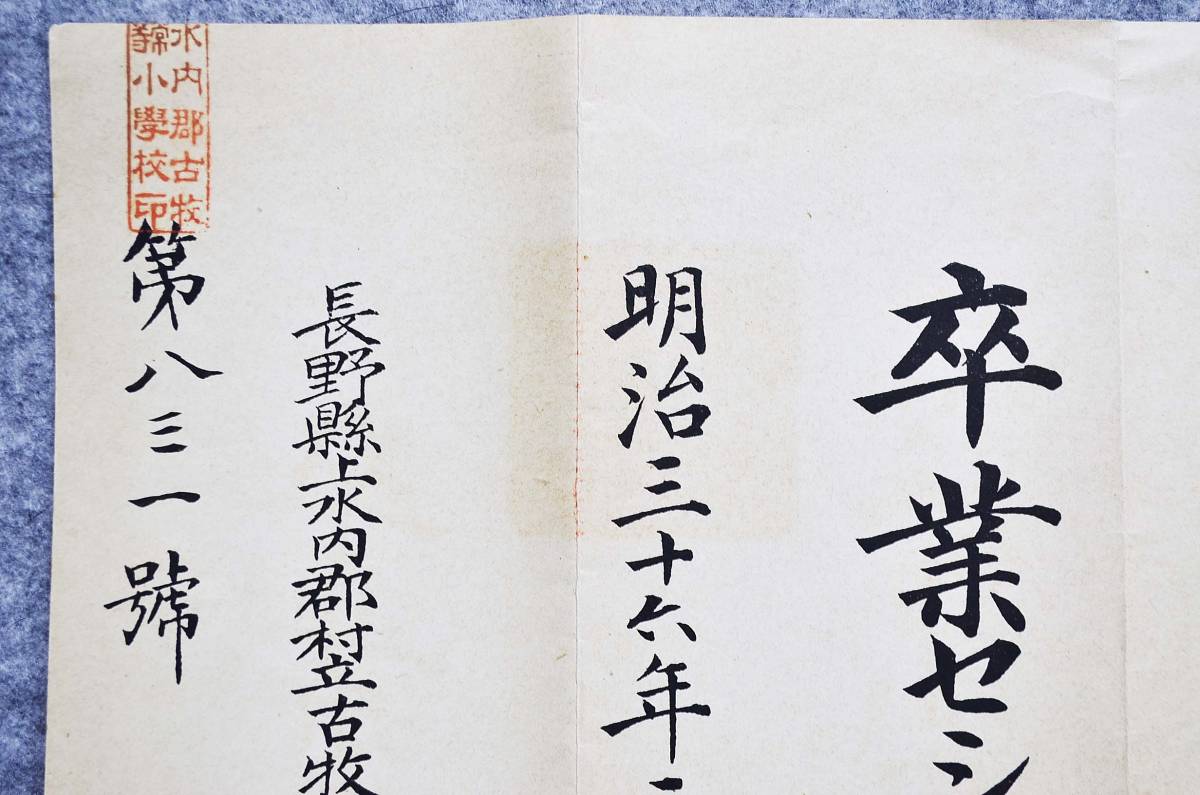 卒業セシ
明治三十六年
長野縣上水内郡村立古牧
第八三一號
水内郡古牧
小學校印